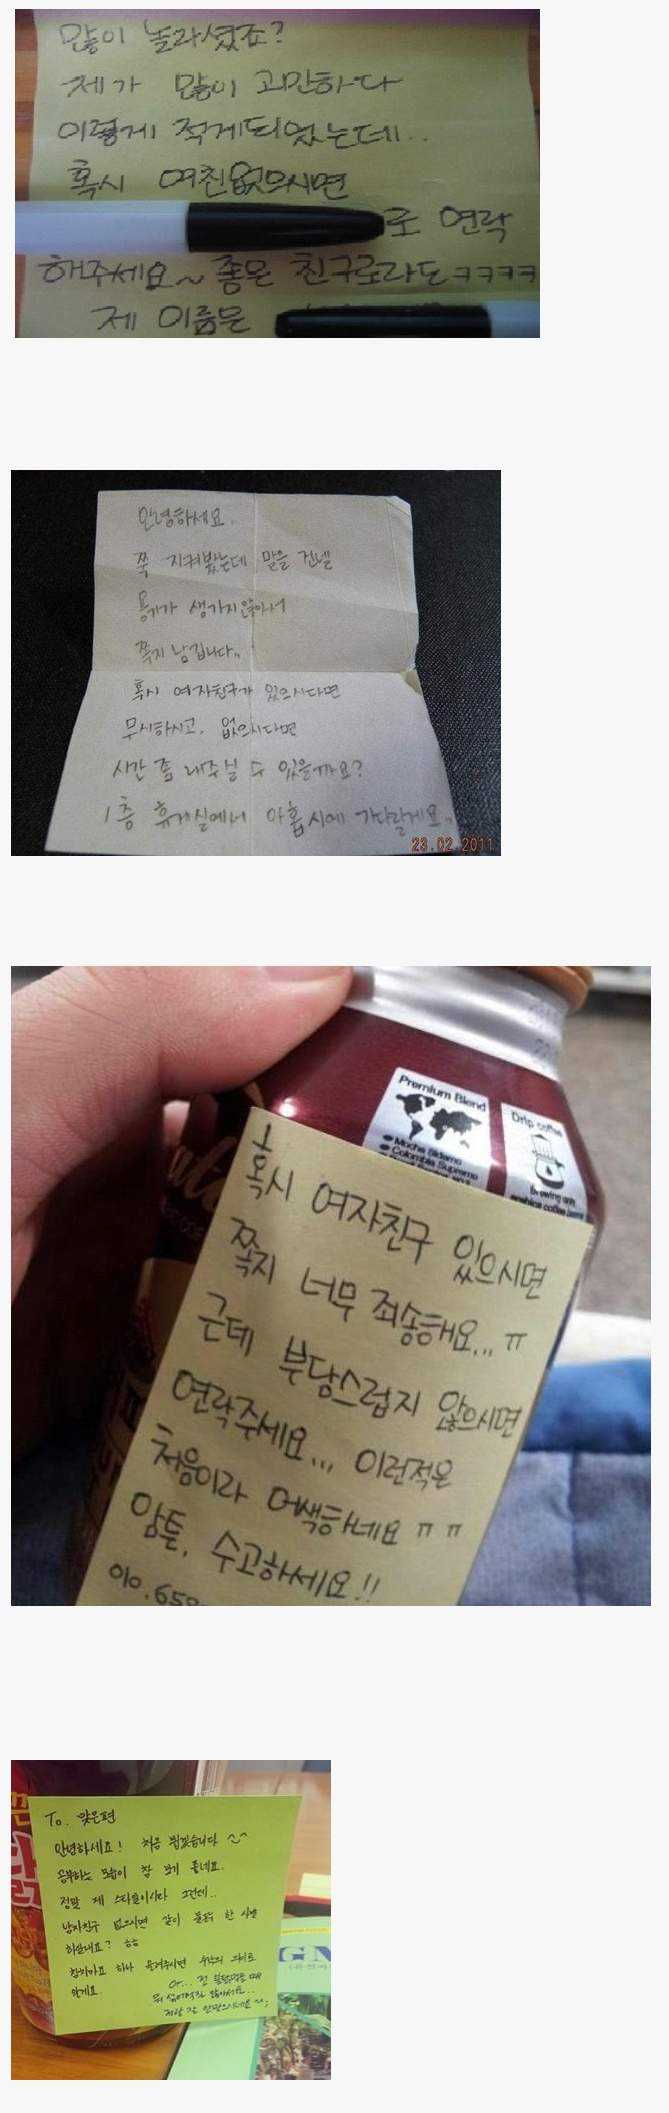 많이 놀라셨죠?
제가 많이 고민하다
이렇게 적게되었는데..
혹시 여친없으시면
로 연락
해주세요~ 좋은 친구로라도ㅋㅋㅋㅋ
제 이름은
안녕하세요.
쭉 지켜봤는데 말을 건넬
용기가 생기지않아서
쪽지 남깁니다..
혹시 여자친구가 있으시다면
무시하시고, 없으시다면
시간 좀 내주실 수 있을까요?
1층 휴게실에서 아홉시에 기다릴게요..
23.02.2011
Premium Blend
Mocha Sidamo
Colombia Supremo
Drip coffee
혹시 여자친구 있으시면
쪽지 너무 죄송해요... ㅠ
근데 부담스럽지 않으시면
연락주세요... 이런적은
처음이라 어색하네요 ㅠㅠ
암튼, 수고하세요!!
010.65
To. 맞은편
안녕하세요! 처음 뵙겠습니다 ^^
공부하는 모습이 참 보기 좋네요.
정말 제 스타일이시라 그런데..
남자친구 없으시면 같이 한
하실래요? ㅎㅎ
하나 돌려주시면
알게요.
Or... 전
GN